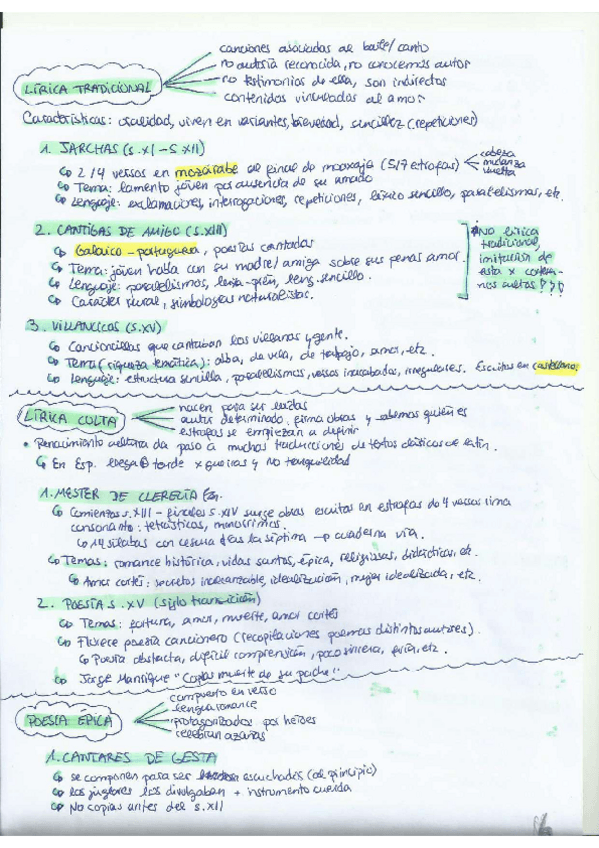 canciones asociadas al baile/canto
no autoría reconocida, no conocemos autor
LÍRICA TRADICIONAL
no testimonios de ella, son indirectos
contenidos vinculados al amor
Características: oralidad, viven en variantes, brevedad, sencillez (repeticiones)
1. JARCHAS (S.XI-S.XII)
2/4 versos en mozárabe al final de moaxaja (5/7 etrofas) cabeza mudanza vuelta
Tema: lamento jóven por ausencia de su amado
Lenguaje: exclamaciones, interrogaciones, repeticiones, léxico sencillo, paralelismos, etc.
2. CANTIGAS DE AMIGO (S.XIII)
Galaico-portuguesa, poesías cantadas
Tema: jóven habla con su madre/amiga sobre sus penas amor.
Lenguaje: paralelismos, leng. sencillo.
Carácter rural, simbologías naturalistas.
No lírica
tradicional,
imitación de
esta x
3. VILLANCICOS (S.XV)
Cancioncillas que cantaban los villanos y gente.
Tema (riqueza temática): alba, de vela, de trabajo, amor, etc.
Lenguaje: estructura sencilla, paralelismos, versos inacabados, irregulares. Escritos en castellano.
nacen para ser leídas
LÍRICA CULTA
autor determinado, firma obras y sabemos quién es
estrofas se empiezan a definir
Renacimiento da paso a muchas traducciones de textos clásicos de latín.
En Esp. llega tarde x guerras y no tranquilidad
1. MESTER DE CLERECÍA
Comienzos s.XIII - finales s.XIV surge obras escritas en estrofas de 4 versos rima
consonante: tetrásticos, monorrimos.
14 sílabas con cesura tras la séptima → cuaderna vía.
Temas: romance histórica, vidas santos, épica, religiosas, didácticas, etc.
Amor cortés: secretos inalcanzable, idealización, mujer idealizada, etc.
2. POESÍA S.XV (siglo transición)
Temas: fortuna, amor, muerte, amor cortés
Florece poesía cancionero (recopilaciones poemas distintos autores).
Poesía abstracta, difícil comprensión, poco sincera, fría, etc.
Jorge Manrique "Coplas muerte de su padre".
compuesto en verso
lengua romance
POESÍA ÉPICA
protagonizadas por héroes
celebran azañas
1. CANTARES DE GESTA
se componen para ser escuchados (al principio)
los juglares los divulgaban + instrumento cuerda
No copias antes del s.XII